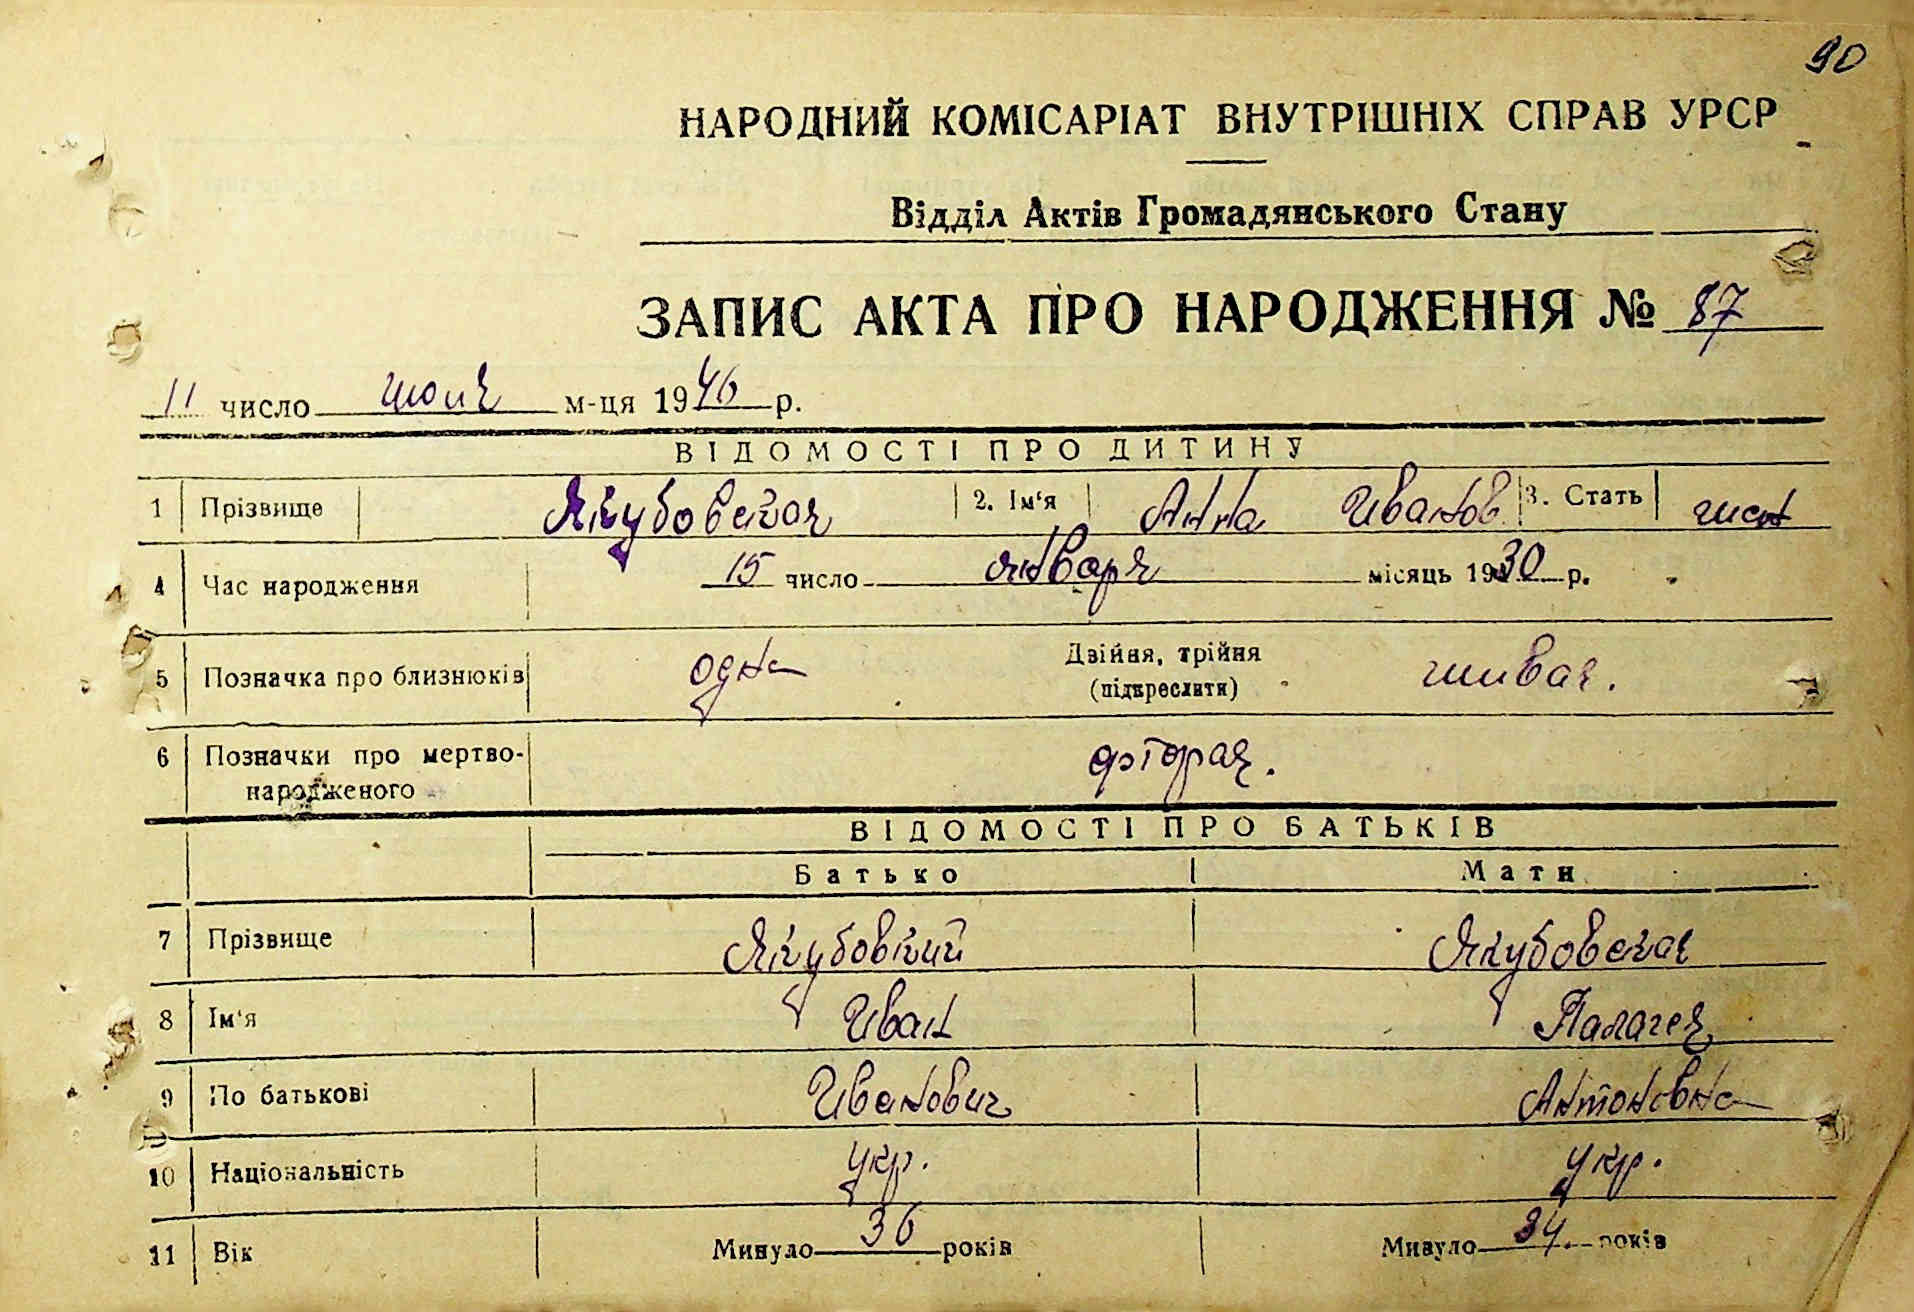 90
НАРОДНИЙ КОМІСАРІАТ ВНУТРІШНІХ СПРАВ УРСР
Відділ Актів Громадянського Стану
ЗАПИС АКТА ПРО НАРОДЖЕННЯ № 87
11 число июля м-ця 1946 р.
ВІДОМОСТІ ПРО ДИТИНУ
1 Прізвище Якубовская 2. Ім'я Анна Иванов 3. Стать жен
4 Час народження 15 число января місяць 1930 р.
5 Позначка про близнюків одна Двійня, трійня (підкреслити) живая.
6 Позначки про мертво-
народженого вторая.
ВІДОМОСТІ ПРО БАТЬКІВ
Батько Мати
7 Прізвище Якубовский Якубовская
8 Ім'я Иван Палагея
9 По батькові Иванович Антоновна
10 Національність укр. укр.
11 Вік Минуло 36 років Минуло 34. років